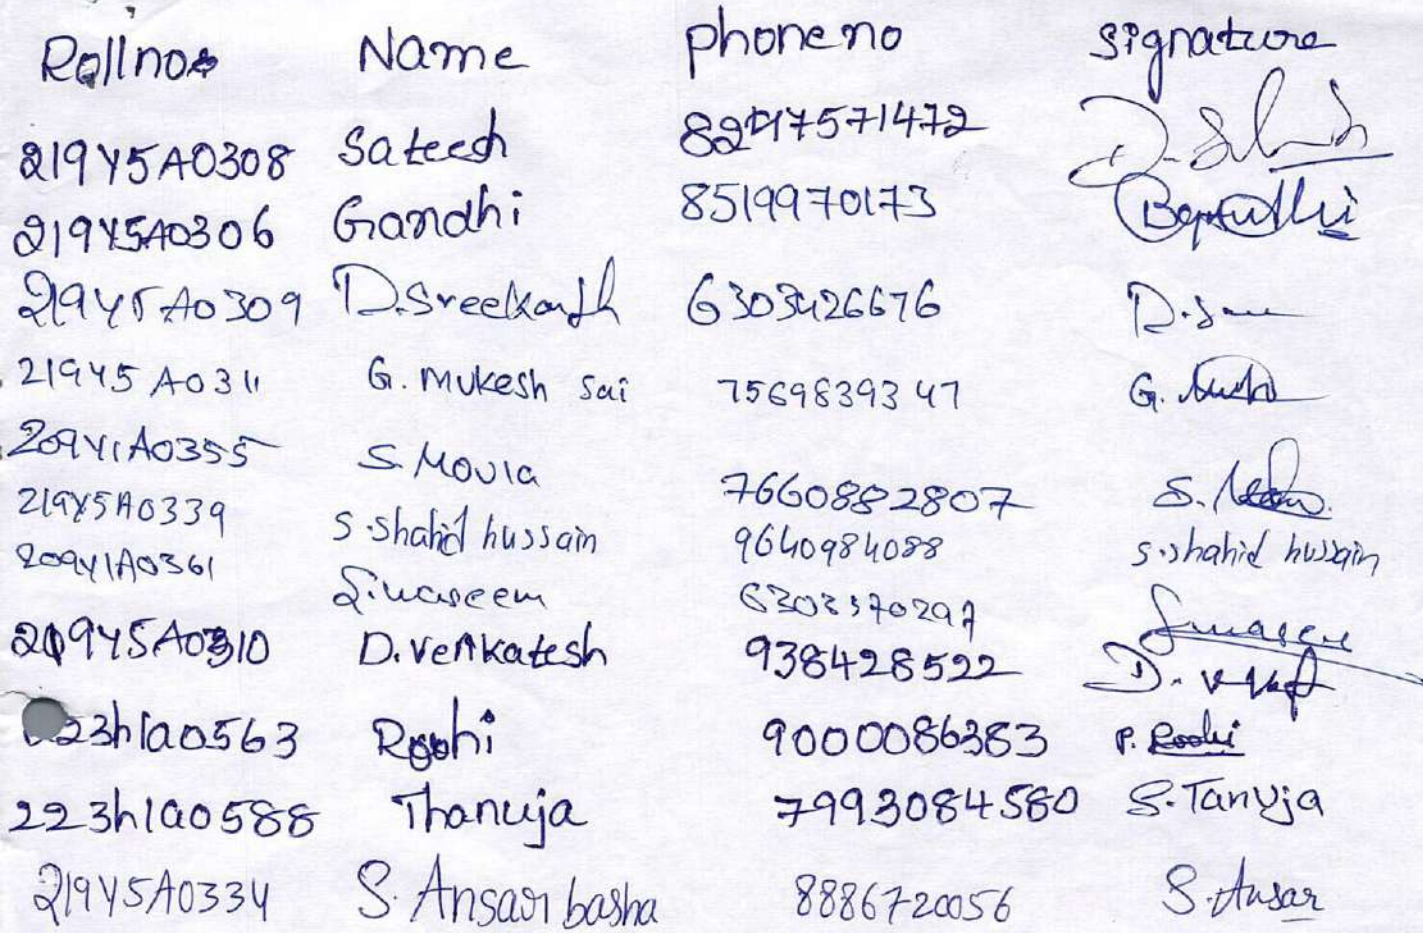 Rollno Name phone no signature
219Y5A0308 Sateesh 8297571472 D.
219Y5A0306 Gandhi 8519970173
219Y5A0309 D.Sreekanth 6303426676 D.S
219Y5A0311 G. Mukesh Sai 7569839347 G.
209Y1A0355 S. Moula 7660882807 S.
219Y5A0339 S.shahid hussain 9640984088 S.shahid hussain
209Y1A0361 S.waseem 6303370297 Swaseem
219Y5A0310 D.Venkatesh 938428522 D.
23h1a0563 Roohi 9000086383 P. Roohi
223h1a0588 Thanuja 7993084580 S.Tanuja
219Y5A0334 S. Ansar basha 8886720056 S.Ansar